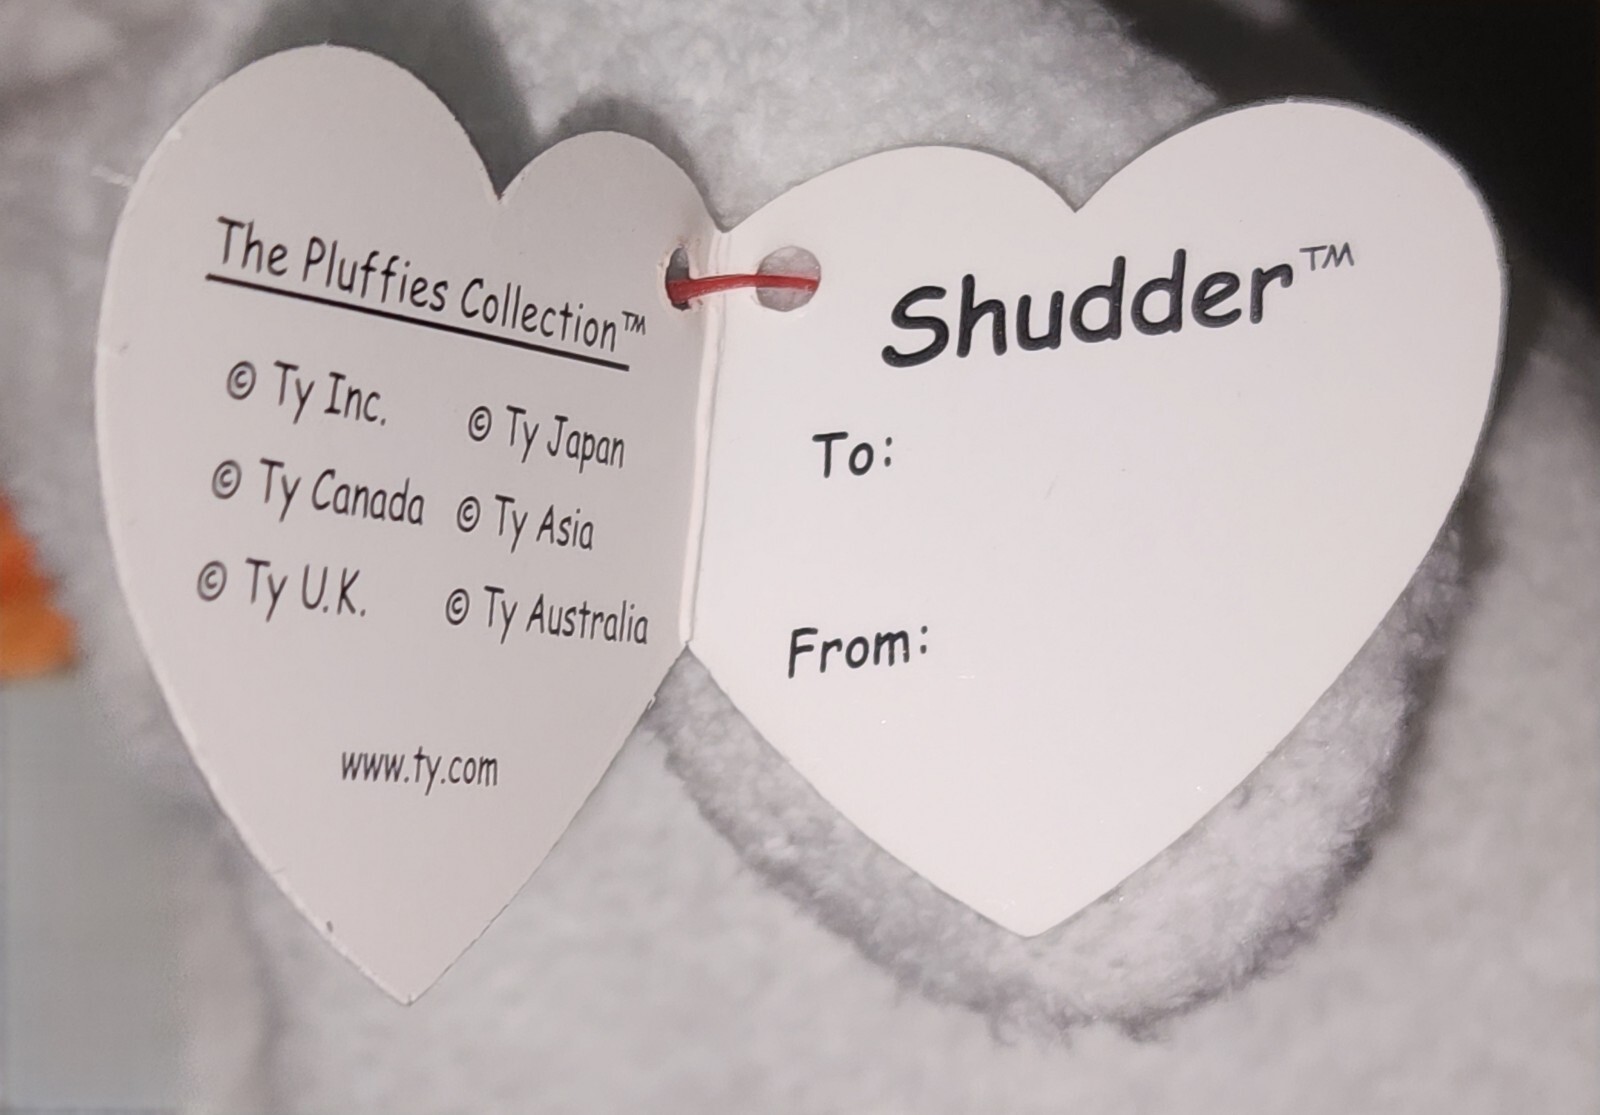 The Pluffies Collection™
© Ty Inc. © Ty Japan
© Ty Canada © Ty Asia
© Ty U.K. © Ty Australia
www.ty.com
Shudder™
To:
From: